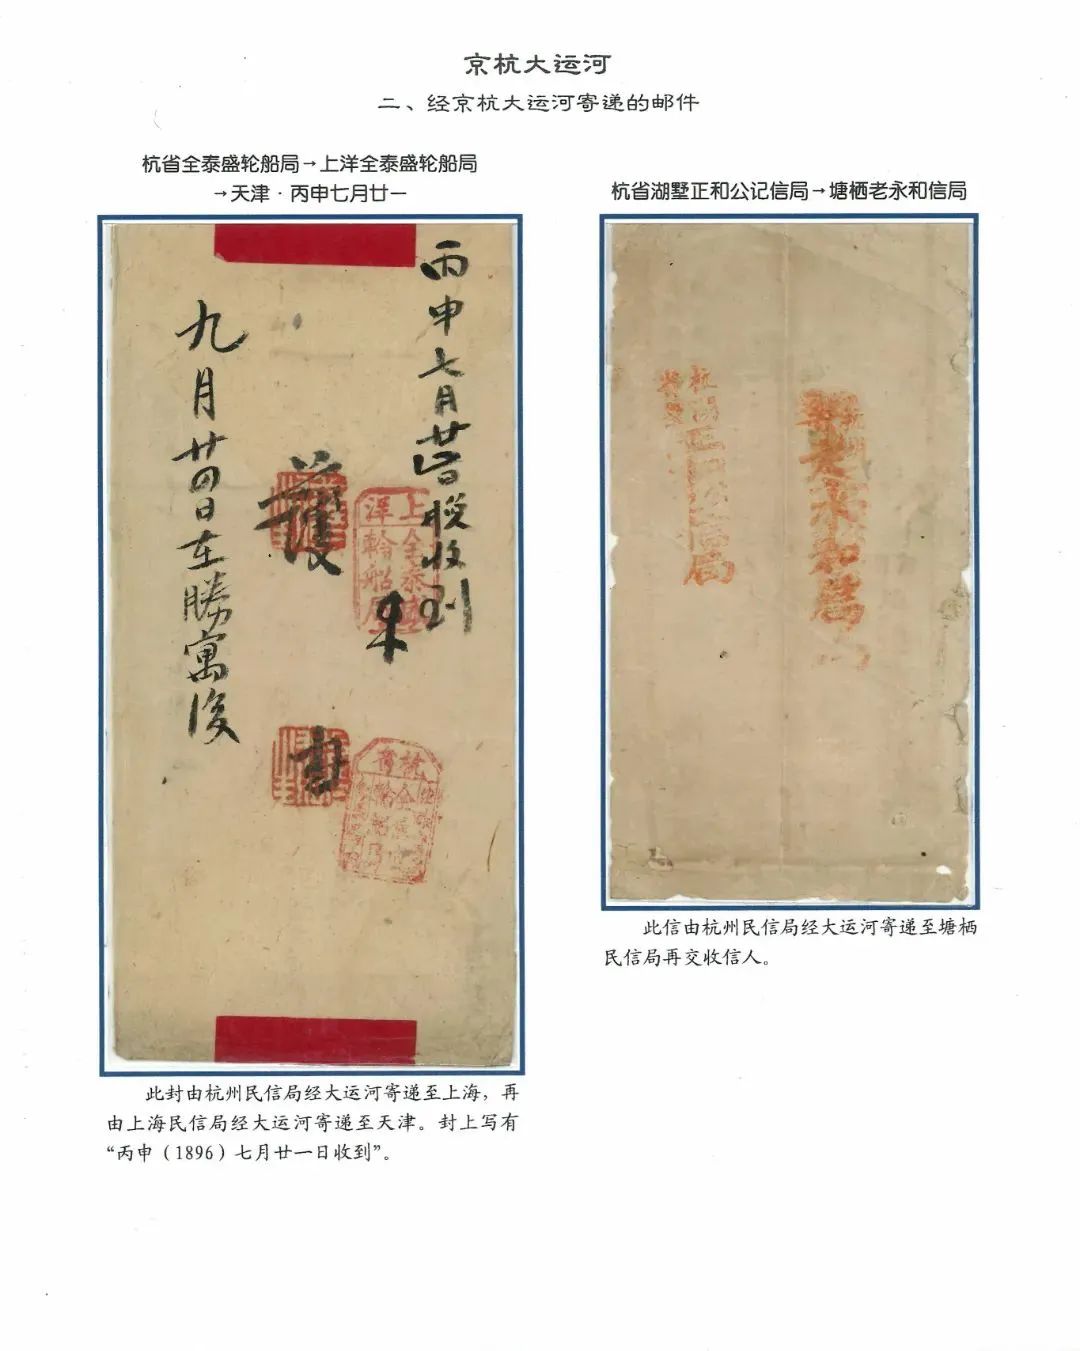 京杭大运河
二、经京杭大运河寄递的邮件
杭省全泰盛轮船局→上洋全泰盛轮船局
→天津·丙申七月廿一
杭省湖墅正和公记信局→塘栖老永和信局
丙申七月廿
收到
九月廿四日在勝寓後
護
封
上洋全泰盛輪船局
杭
老永和信
局
此信由杭州民信局经大运河寄递至塘栖
民信局再交收信人。
此封由杭州民信局经大运河寄递至上海，再
由上海民信局经大运河寄递至天津。封上写有
“丙申（1896）七月廿一日收到”。